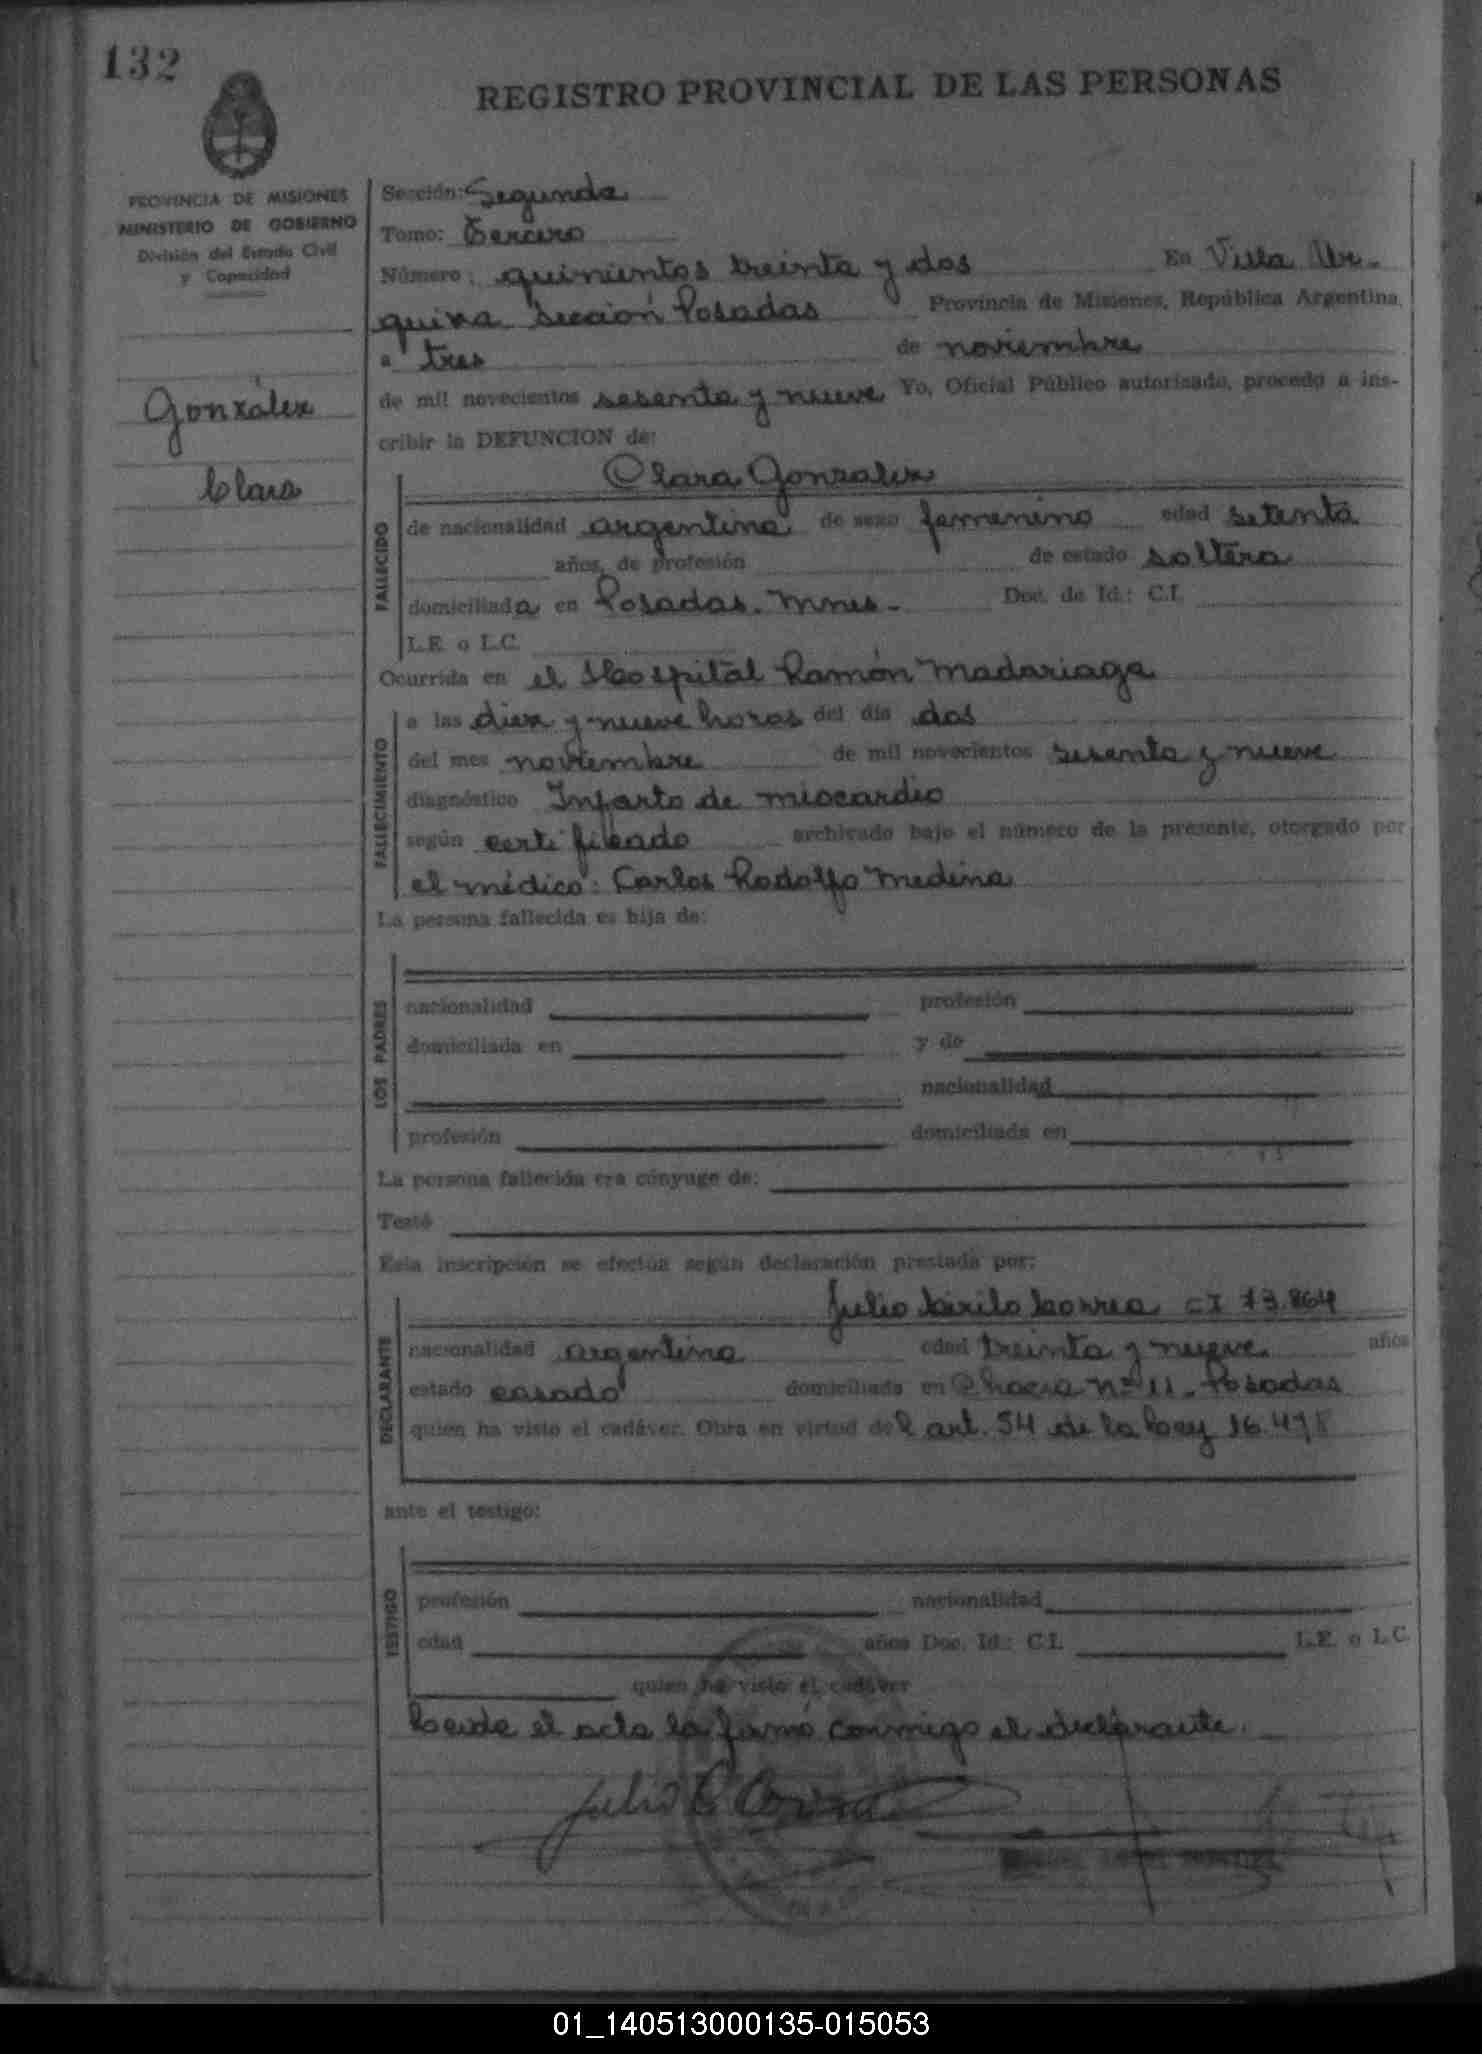 132
REGISTRO PROVINCIAL DE LAS PERSONAS
PROVINCIA DE MISIONES
MINISTERIO DE GOBIERNO
División del Estado Civil
y Capacidad
González
Clara
Sección: Segunda
Tomo: Tercero
Número: quinientos treinta y dos En Villa Ur-
quiza Sección Posadas Provincia de Misiones, República Argentina,
a tres de noviembre
de mil novecientos sesenta y nueve Yo, Oficial Público autorizado, procedo a ins-
cribir la DEFUNCION de:
FALLECIDO
Clara Gonzalez
de nacionalidad argentina de sexo femenino edad setenta
años, de profesión de estado soltera
domiciliada en Posadas. Mnes.- Doc. de Id.: C.I.
L.E. o L.C.
Ocurrida en el Hospital Ramón Madariaga
FALLECIMIENTO
a las diez y nueve horas del día dos
del mes noviembre de mil novecientos sesenta y nueve
diagnóstico Infarto de miocardio
según certificado archivado bajo el número de la presente, otorgado por
el médico: Carlos Rodolfo Medina
La persona fallecida es hija de:
LOS PADRES
nacionalidad profesión
domiciliada en y de
nacionalidad
profesión domiciliada en
La persona fallecida era cónyuge de:
Testó
Esta inscripción se efectúa según declaración prestada por:
DECLARANTE
Julio Cirilo Correa CI 73.864
nacionalidad argentina edad treinta y nueve años
estado casado domiciliada en Chacra nº 11. Posadas
quien ha visto el cadáver. Obra en virtud del art. 54 de la Ley 16.478
ante el testigo:
TESTIGO
profesión nacionalidad
edad años Doc. Id.: C.I. L.E. o L.C.
quien ha visto el cadáver
Leida el acta la firmó conmigo el declarante.
Julio C. Correa
01_140513000135-015053